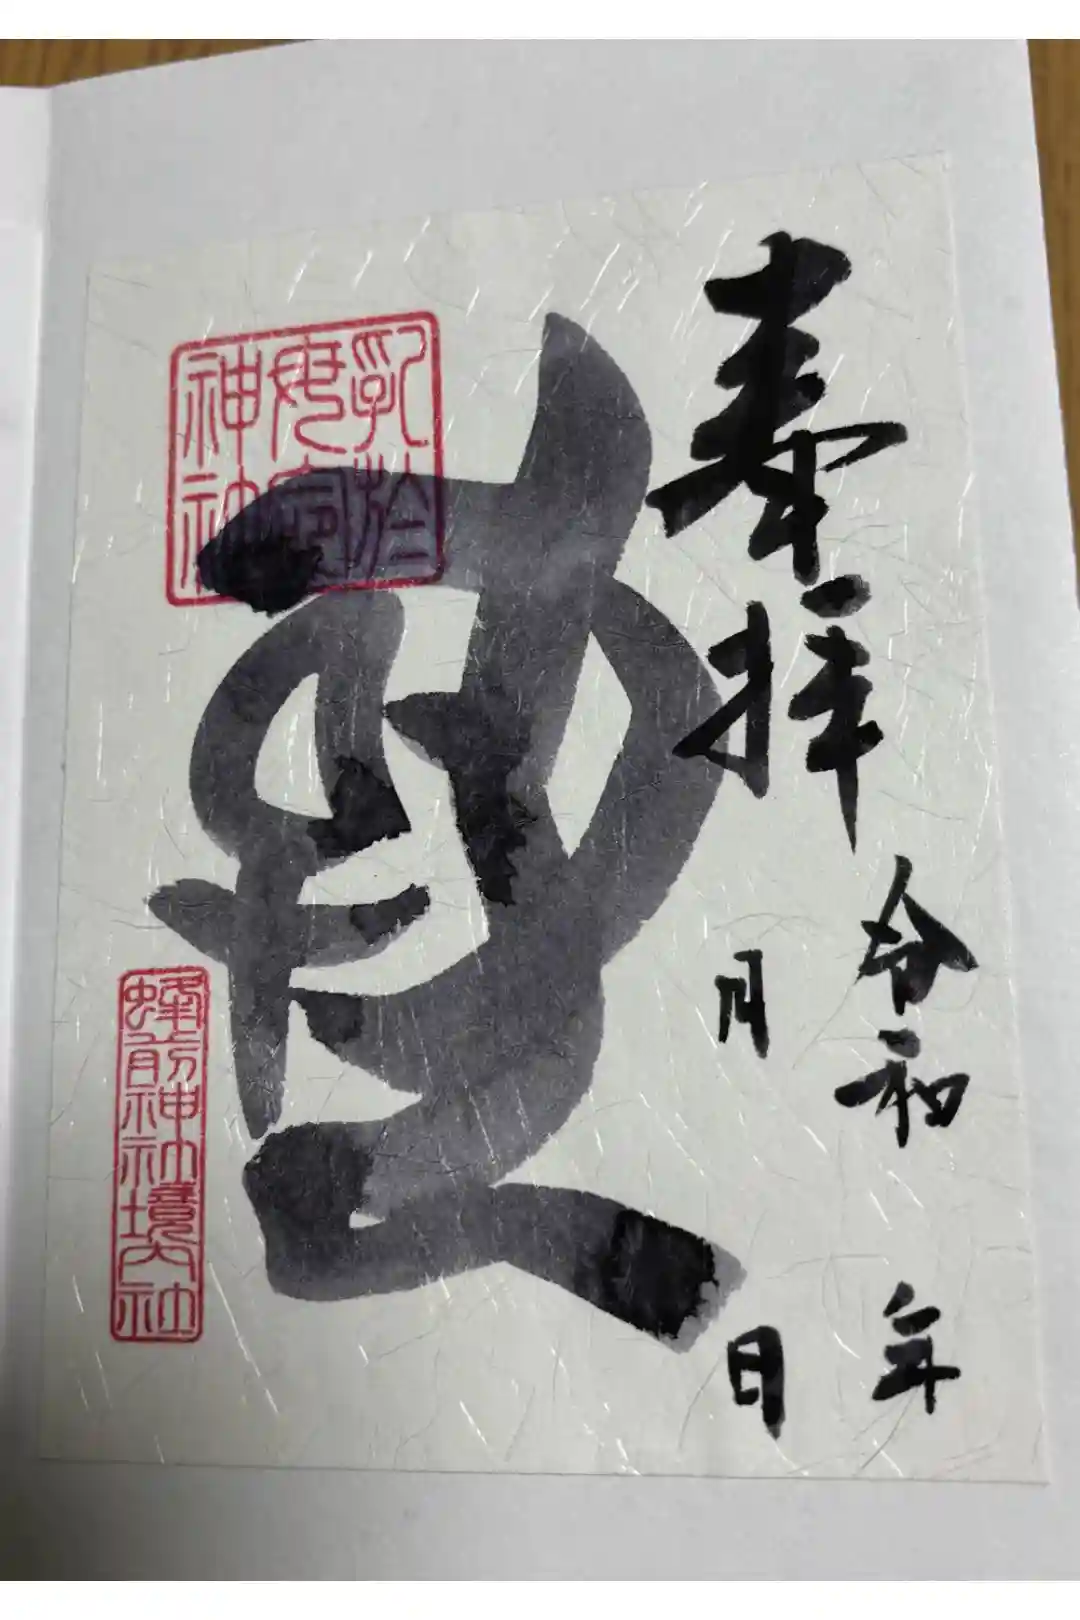 奉拝
令和 年
月 日
神社
蜂前神社境内社